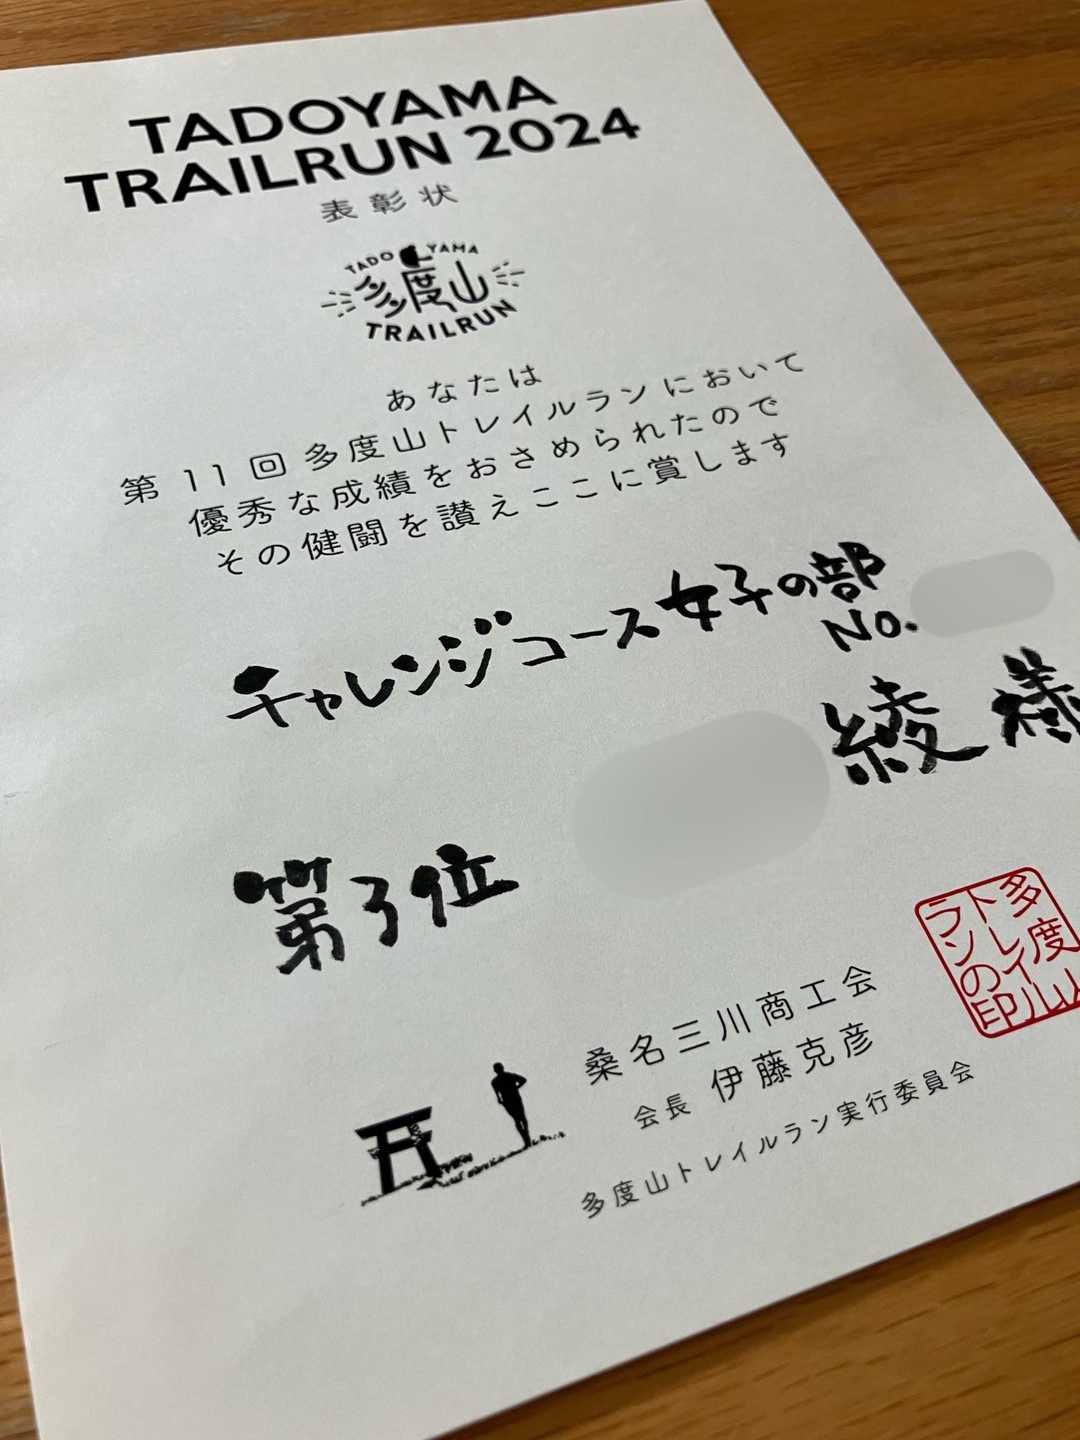 TADOYAMA
TRAILRUN 2024
表彰状
TADO YAMA
多度山
TRAILRUN
あなたは
第11回多度山トレイルランにおいて
優秀な成績をおさめられたので
その健闘を讃えここに賞します
チャレンジコース女子の部
No.
綾様
第3位
多度山
トレイル
ランの印
桑名三川商工会
会長 伊藤克彦
多度山トレイルラン実行委員会